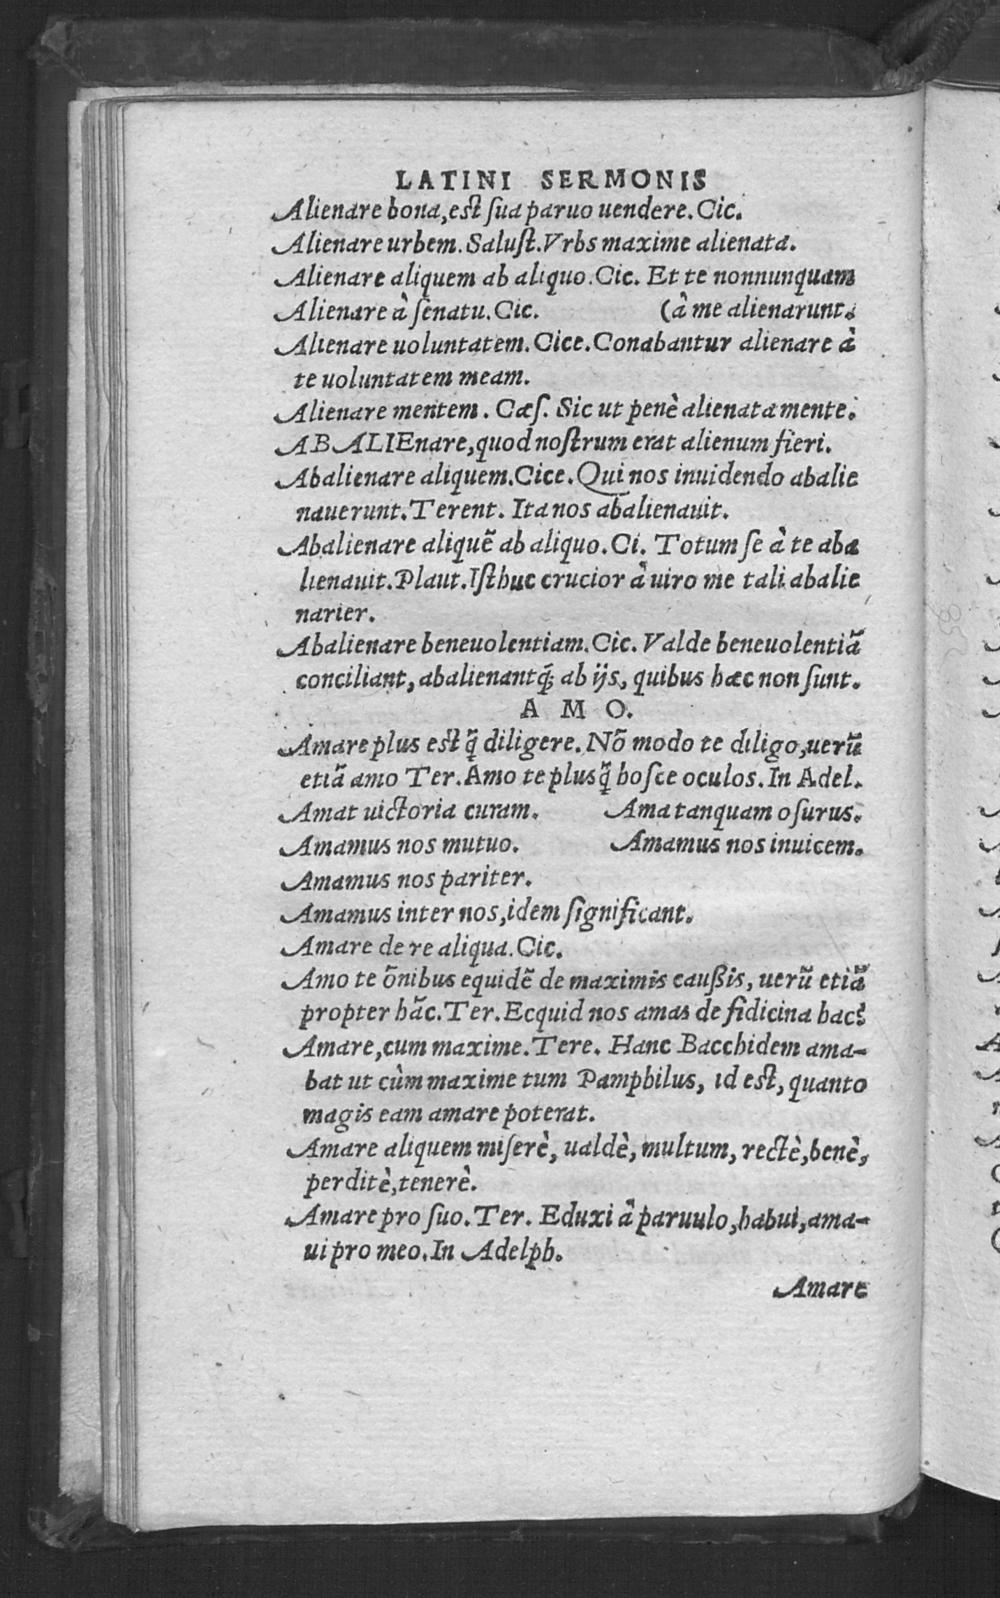 LATINI SERMONIS
Alienare bona, est ſua paruo uendere. Cic.
Alienare urbem. Saluſt. Vrbs maxime alienata.
Alienare aliquem ab aliquo. Cic. Et te nonnunquam
Alienare à ſenatu. Cic. (à me alienarunt.
Alienare uoluntatem. Cice. Conabantur alienare à
te uoluntatem meam.
Alienare mentem. Cæſ. Sic ut penè alienata mente.
ABALIEnare, quod noſtrum erat alienum fieri.
Abalienare aliquem. Cice. Qui nos inuidendo abalie
nauerunt. Terent. Ita nos abalienauit.
Abalienare aliquē ab aliquo. Ci. Totum ſe à te aba
lienauit. Plaut. Iſthuc crucior à uiro me tali abalie
narier.
Abalienare beneuolentiam. Cic. Valde beneuolentiā
conciliant, abalienantq́; ab ijs, quibus hæc non ſunt.
A M O.
Amare plus est q̃ diligere. Nō modo te diligo, uerū
etiā amo Ter. Amo te plusq̃ hoſce oculos. In Adel.
Amat uictoria curam. Ama tanquam oſurus.
Amamus nos mutuo. Amamus nos inuicem.
Amamus nos pariter.
Amamus inter nos, idem ſignificant.
Amare de re aliqua. Cic.
Amo te ōnibus equidē de maximis cauſsis, uerū etiā
propter hāc. Ter. Ecquid nos amas de fidicina hac?
Amare, cum maxime. Tere. Hanc Bacchidem ama-
bat ut cùm maxime tum Pamphilus, id est, quanto
magis eam amare poterat.
Amare aliquem miſerè, ualdè, multum, rectè, benè,
perditè, tenerè.
Amare pro ſuo. Ter. Eduxi à paruulo, habui, ama-
ui pro meo. In Adelph.
Amare